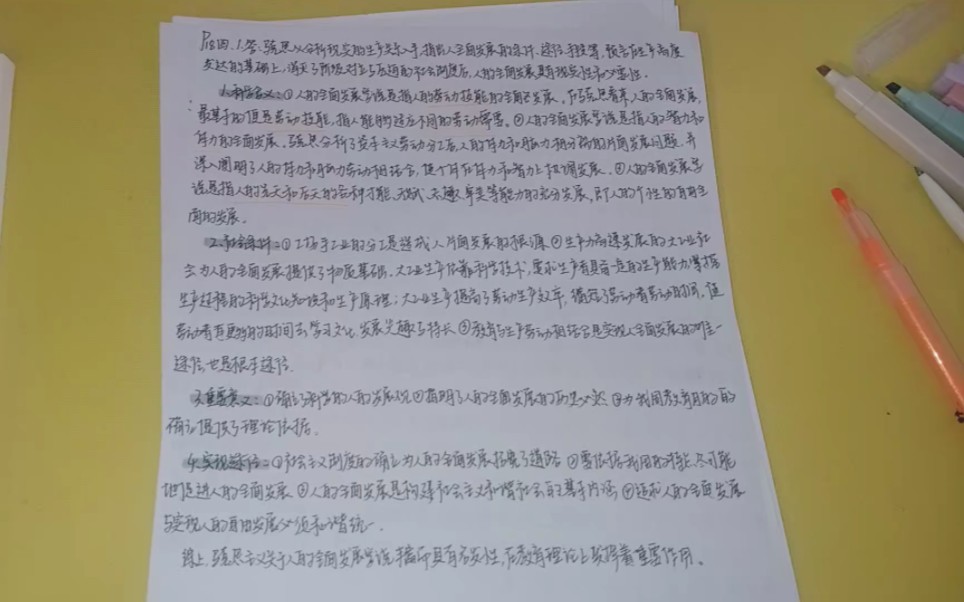 四、1.答:马克思从分析现实的生产关系入手,指出人全面发展的条件、途径、手段等,预言在生产高度
发达的基础上,消灭了阶级对立与压迫的社会制度后,人的全面发展具有现实性和必要性。
1.科学含义:①人的全面发展学说是指人的劳动技能的全面发展。在马克思看来,人的全面发展,
最基本的便是劳动技能,指人能够适应不同的劳动需要。②人的全面发展学说是指人的智力和
体力的全面发展。马克思分析了资本主义劳动分工后,人的体力和脑力相分离的片面发展问题,并
深入阐明了人的体力和脑力劳动相结合,使个体在体力和智力上协调发展。③人的全面发展学
说是指人的先天和后天的各种才能、志趣、审美等能力的充分发展,即人的个性的自由全
面的发展。
2.社会条件:①工场手工业的分工是造成人片面发展的根源②生产力高速发展的大工业社
会为人的全面发展提供了物质基础。大工业生产依靠科学技术,要求生产者具有一定的生产能力,掌握
生产过程的科学文化知识和生产原理;大工业生产提高了劳动生产效率,缩短了劳动者劳动时间,使
劳动者有更多的时间去学习文化、发展兴趣与特长③教育与生产劳动相结合是实现人全面发展的唯一
途径,也是根本途径。
3.重要意义:①确立了科学的人的发展观②指明了人的全面发展的历史必然③为我国教育目的的
确立提供了理论依据。
4.实现途径:①社会主义制度的确立为人的全面发展拓宽了道路②要依据我国的特点尽可能
地促进人的全面发展③人的全面发展是构建社会主义和谐社会的基本内涵④追求人的全面发展
与实现人的自由发展必须和谐统一。
综上,马克思主义关于人的全面发展学说博而具有启发性,在教育理论上发挥着重要作用。